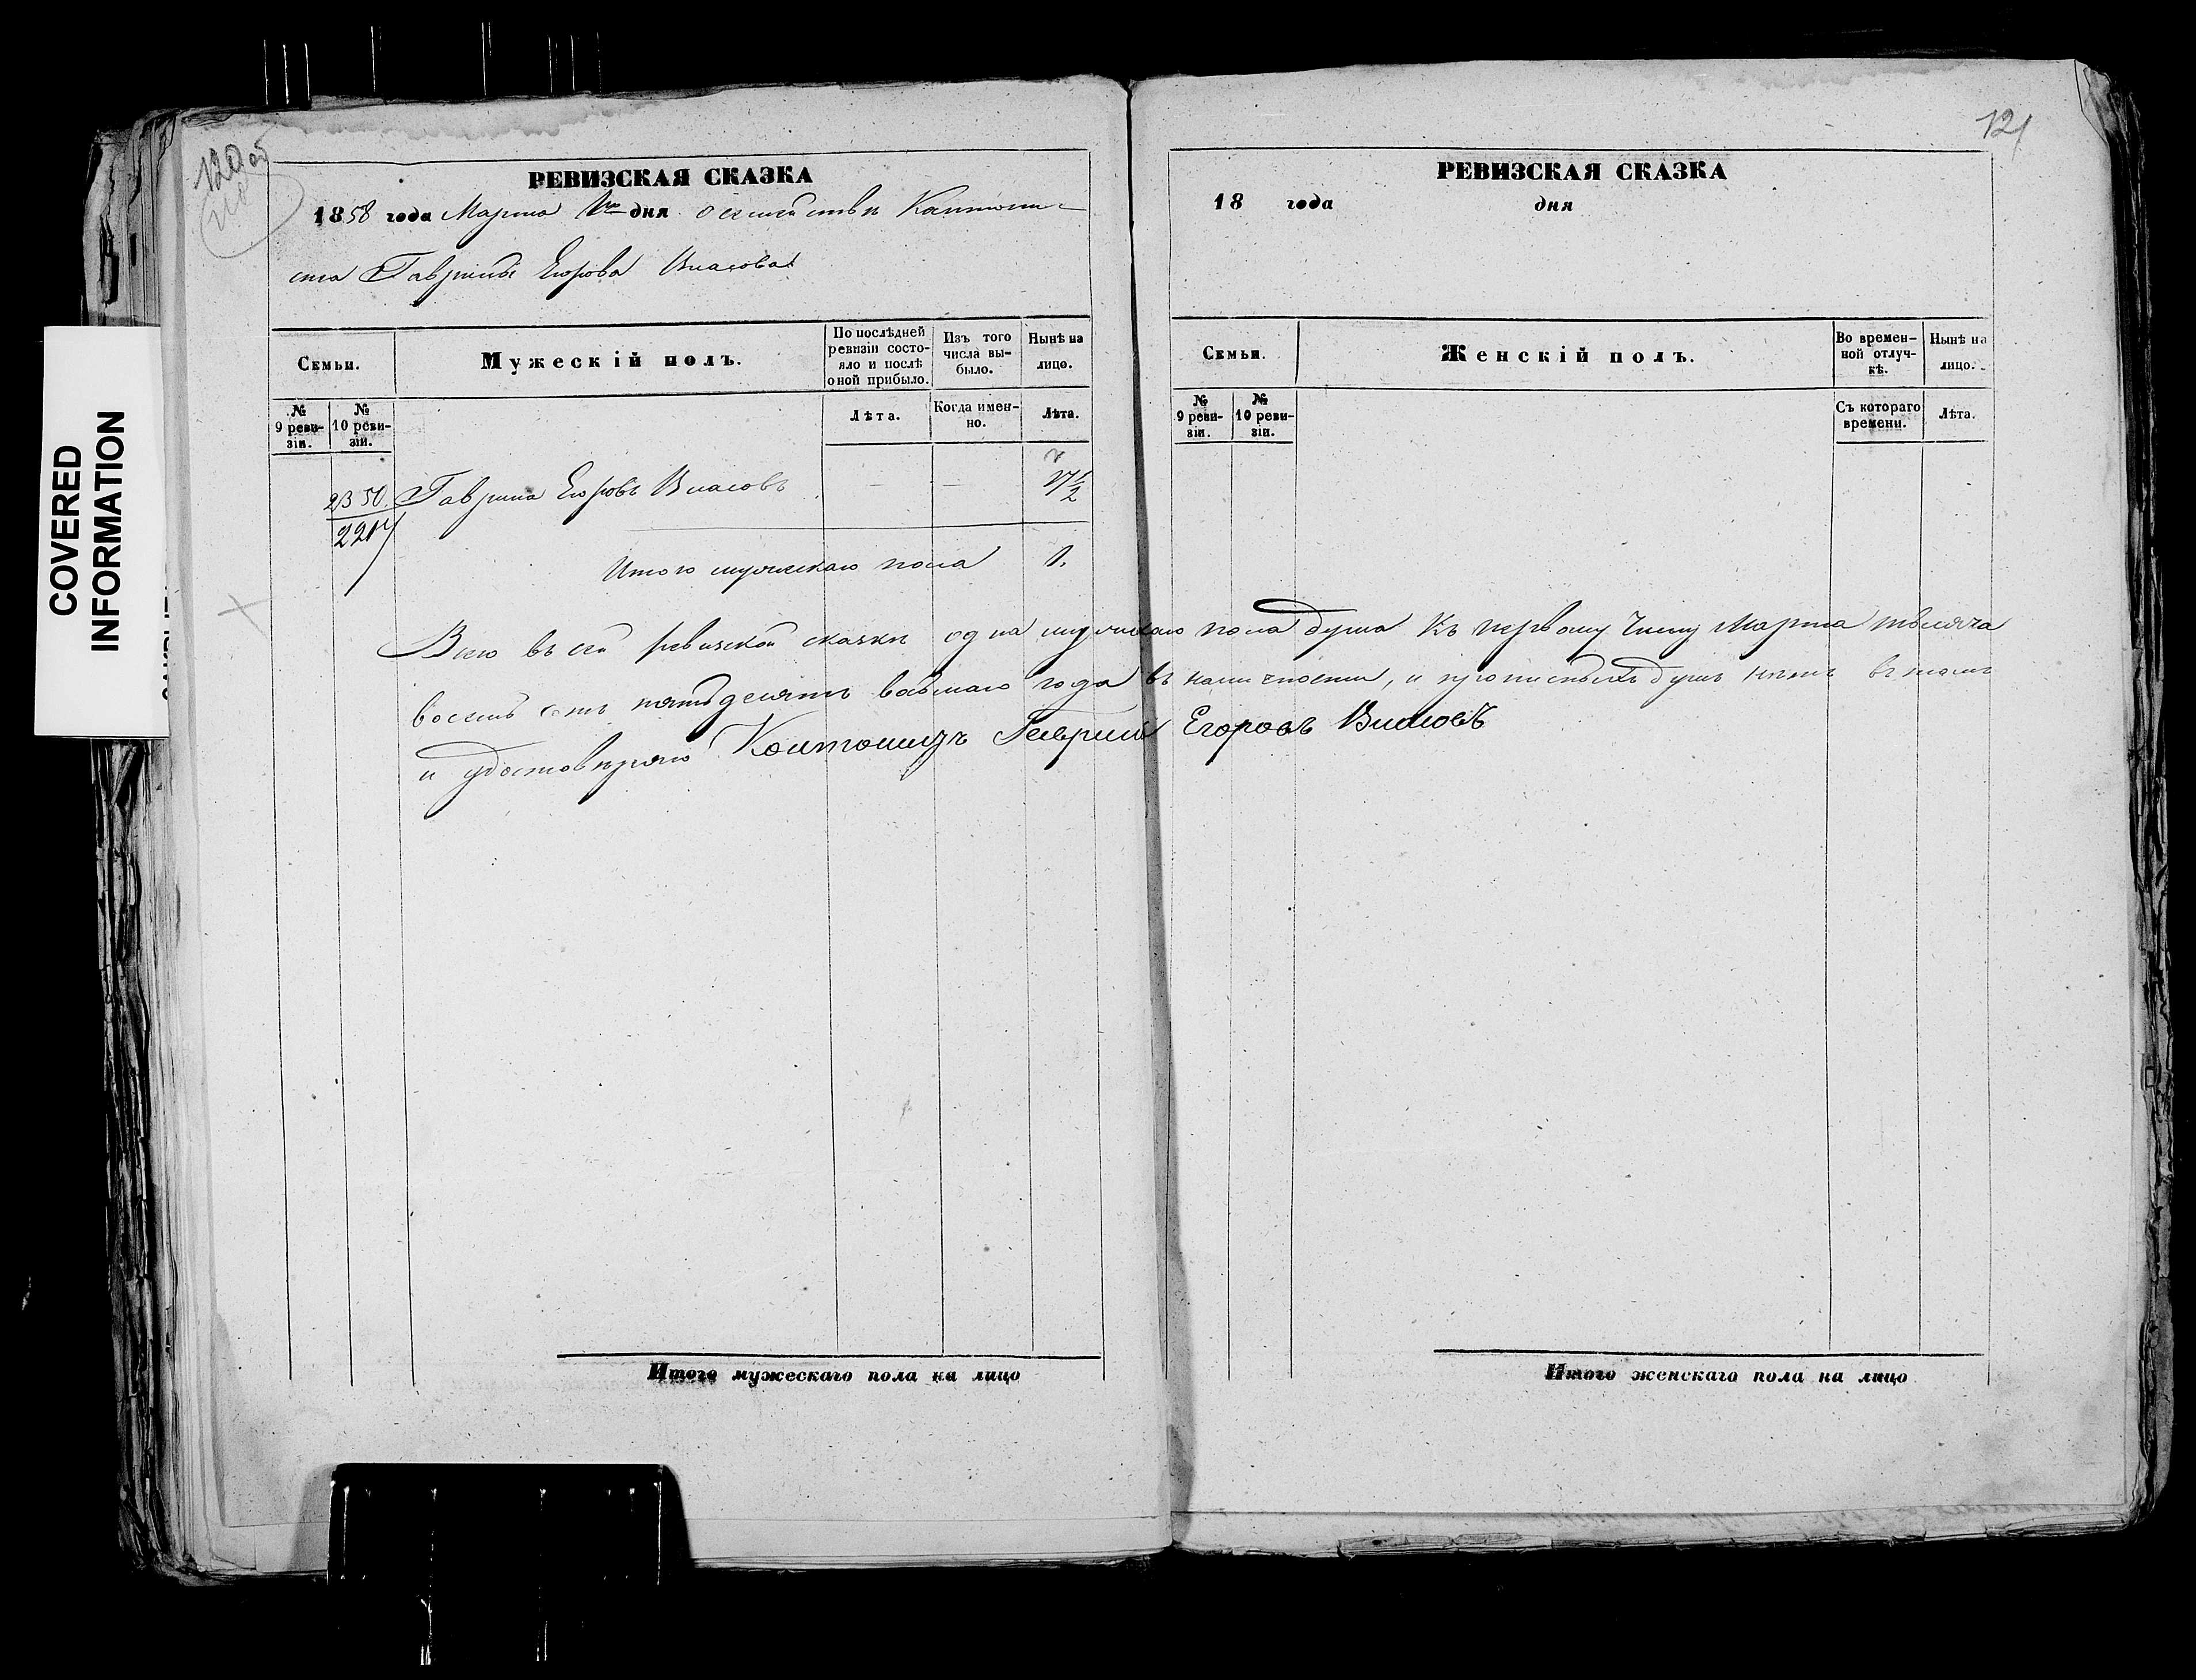 120 об
РЕВИЗСКАЯ СКАЗКА
1858 года Марта 1го дня о семействѣ Кантони-
ста Гаврилы Егорова Власова
Семьи.
Мужескій полъ.
По послѣдней ревизіи состо-яло и послѣ оной прибыло.
Изъ того числа вы-было.
Нынѣ на лицо.
№ 9 реви-зіи.
№ 10 реви-зіи.
Лѣта.
Когда имен-но.
Лѣта.
2350. Гаврила Егоровъ Власовъ — — 17½
2217
Итого мужескаго пола 1.
Всего въ сей ревизской сказкѣ одна мужескаго пола душа къ первому числу Марта тысяча
восемь сотъ пятьдесятъ восьмаго года въ наличности, и прописныхъ душъ нѣтъ въ томъ
и удостовѣряю Кантонистъ Гаврила Егоровъ Власовъ
Итого мужескаго пола на лицо
121
РЕВИЗСКАЯ СКАЗКА
18 года дня
Семьи.
Женскій полъ.
Во времен-ной отлуч-кѣ.
Нынѣ на лицо.
№ 9 реви-зіи.
№ 10 реви-зіи.
Съ котораго времени.
Лѣта.
Итого женскаго пола на лицо
COVERED
INFORMATION